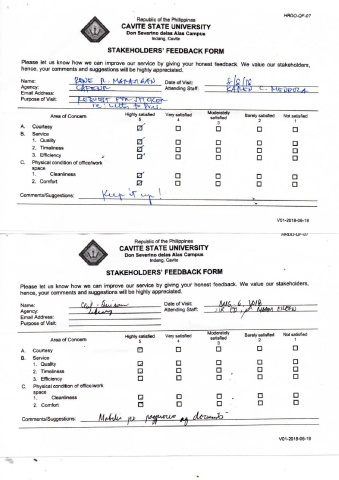 HRDO-QF-07
Republic of the Philippines
CAVITE STATE UNIVERSITY
Don Severino delas Alas Campus
Indang, Cavite
STAKEHOLDERS' FEEDBACK FORM
Please let us know how we can improve our service by giving your honest feedback. We value our stakeholders,
hence, your comments and suggestions will be highly appreciated.
Name: Date of Visit:
Agency: Attending Staff: KAREN C. MENDOZA
Email Address:
Purpose of Visit: REQUEST FOR
Area of Concern Highly satisfied 5 Very satisfied 4 Moderately satisfied 3 Barely satisfied 2 Not satisfied 1
A. Courtesy
B. Service
1. Quality
2. Timeliness
3. Efficiency
C. Physical condition of office/work
space
1. Cleanliness
2. Comfort
Comments/Suggestions: Keep it up!
V01-2018-06-19
HRDO-QF-07
Republic of the Philippines
CAVITE STATE UNIVERSITY
Don Severino delas Alas Campus
Indang, Cavite
STAKEHOLDERS' FEEDBACK FORM
Please let us know how we can improve our service by giving your honest feedback. We value our stakeholders,
hence, your comments and suggestions will be highly appreciated.
Name: Date of Visit: AUG. 6, 2018
Agency: Library Attending Staff:
Email Address:
Purpose of Visit:
Area of Concern Highly satisfied 5 Very satisfied 4 Moderately satisfied 3 Barely satisfied 2 Not satisfied 1
A. Courtesy
B. Service
1. Quality
2. Timeliness
3. Efficiency
C. Physical condition of office/work
space
1. Cleanliness
2. Comfort
Comments/Suggestions: Mabilis
V01-2018-06-19